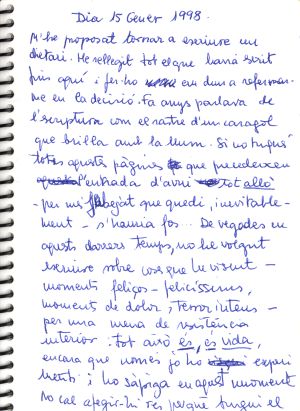 Dia 15 Gener 1998.
M'he proposat tornar a escriure un
dietari. He rellegit tot el que havia escrit
fins aquí i fer-ho em duu a refermar-
me en la decisió. Fa anys parlava de
l'escriptura com el rastre d'un caragol
que brilla amb la llum. Si no tingués
totes aquestes pàgines que precedeixen
l'entrada d'avui tot allò
-per mi que quedi, inevitable-
ment - s'hauria fos... De vegades en
aquests darrers temps, no he volgut
escriure sobre coses que he viscut -
moments feliços - felicíssims,
moments de dolor, terror intens -
per una mena de resistència
interior. Tot això és, és vida,
encara que només jo ho experi
menti i ho sàpiga en aquest moment
No cal afegir-hi res perquè tingui el